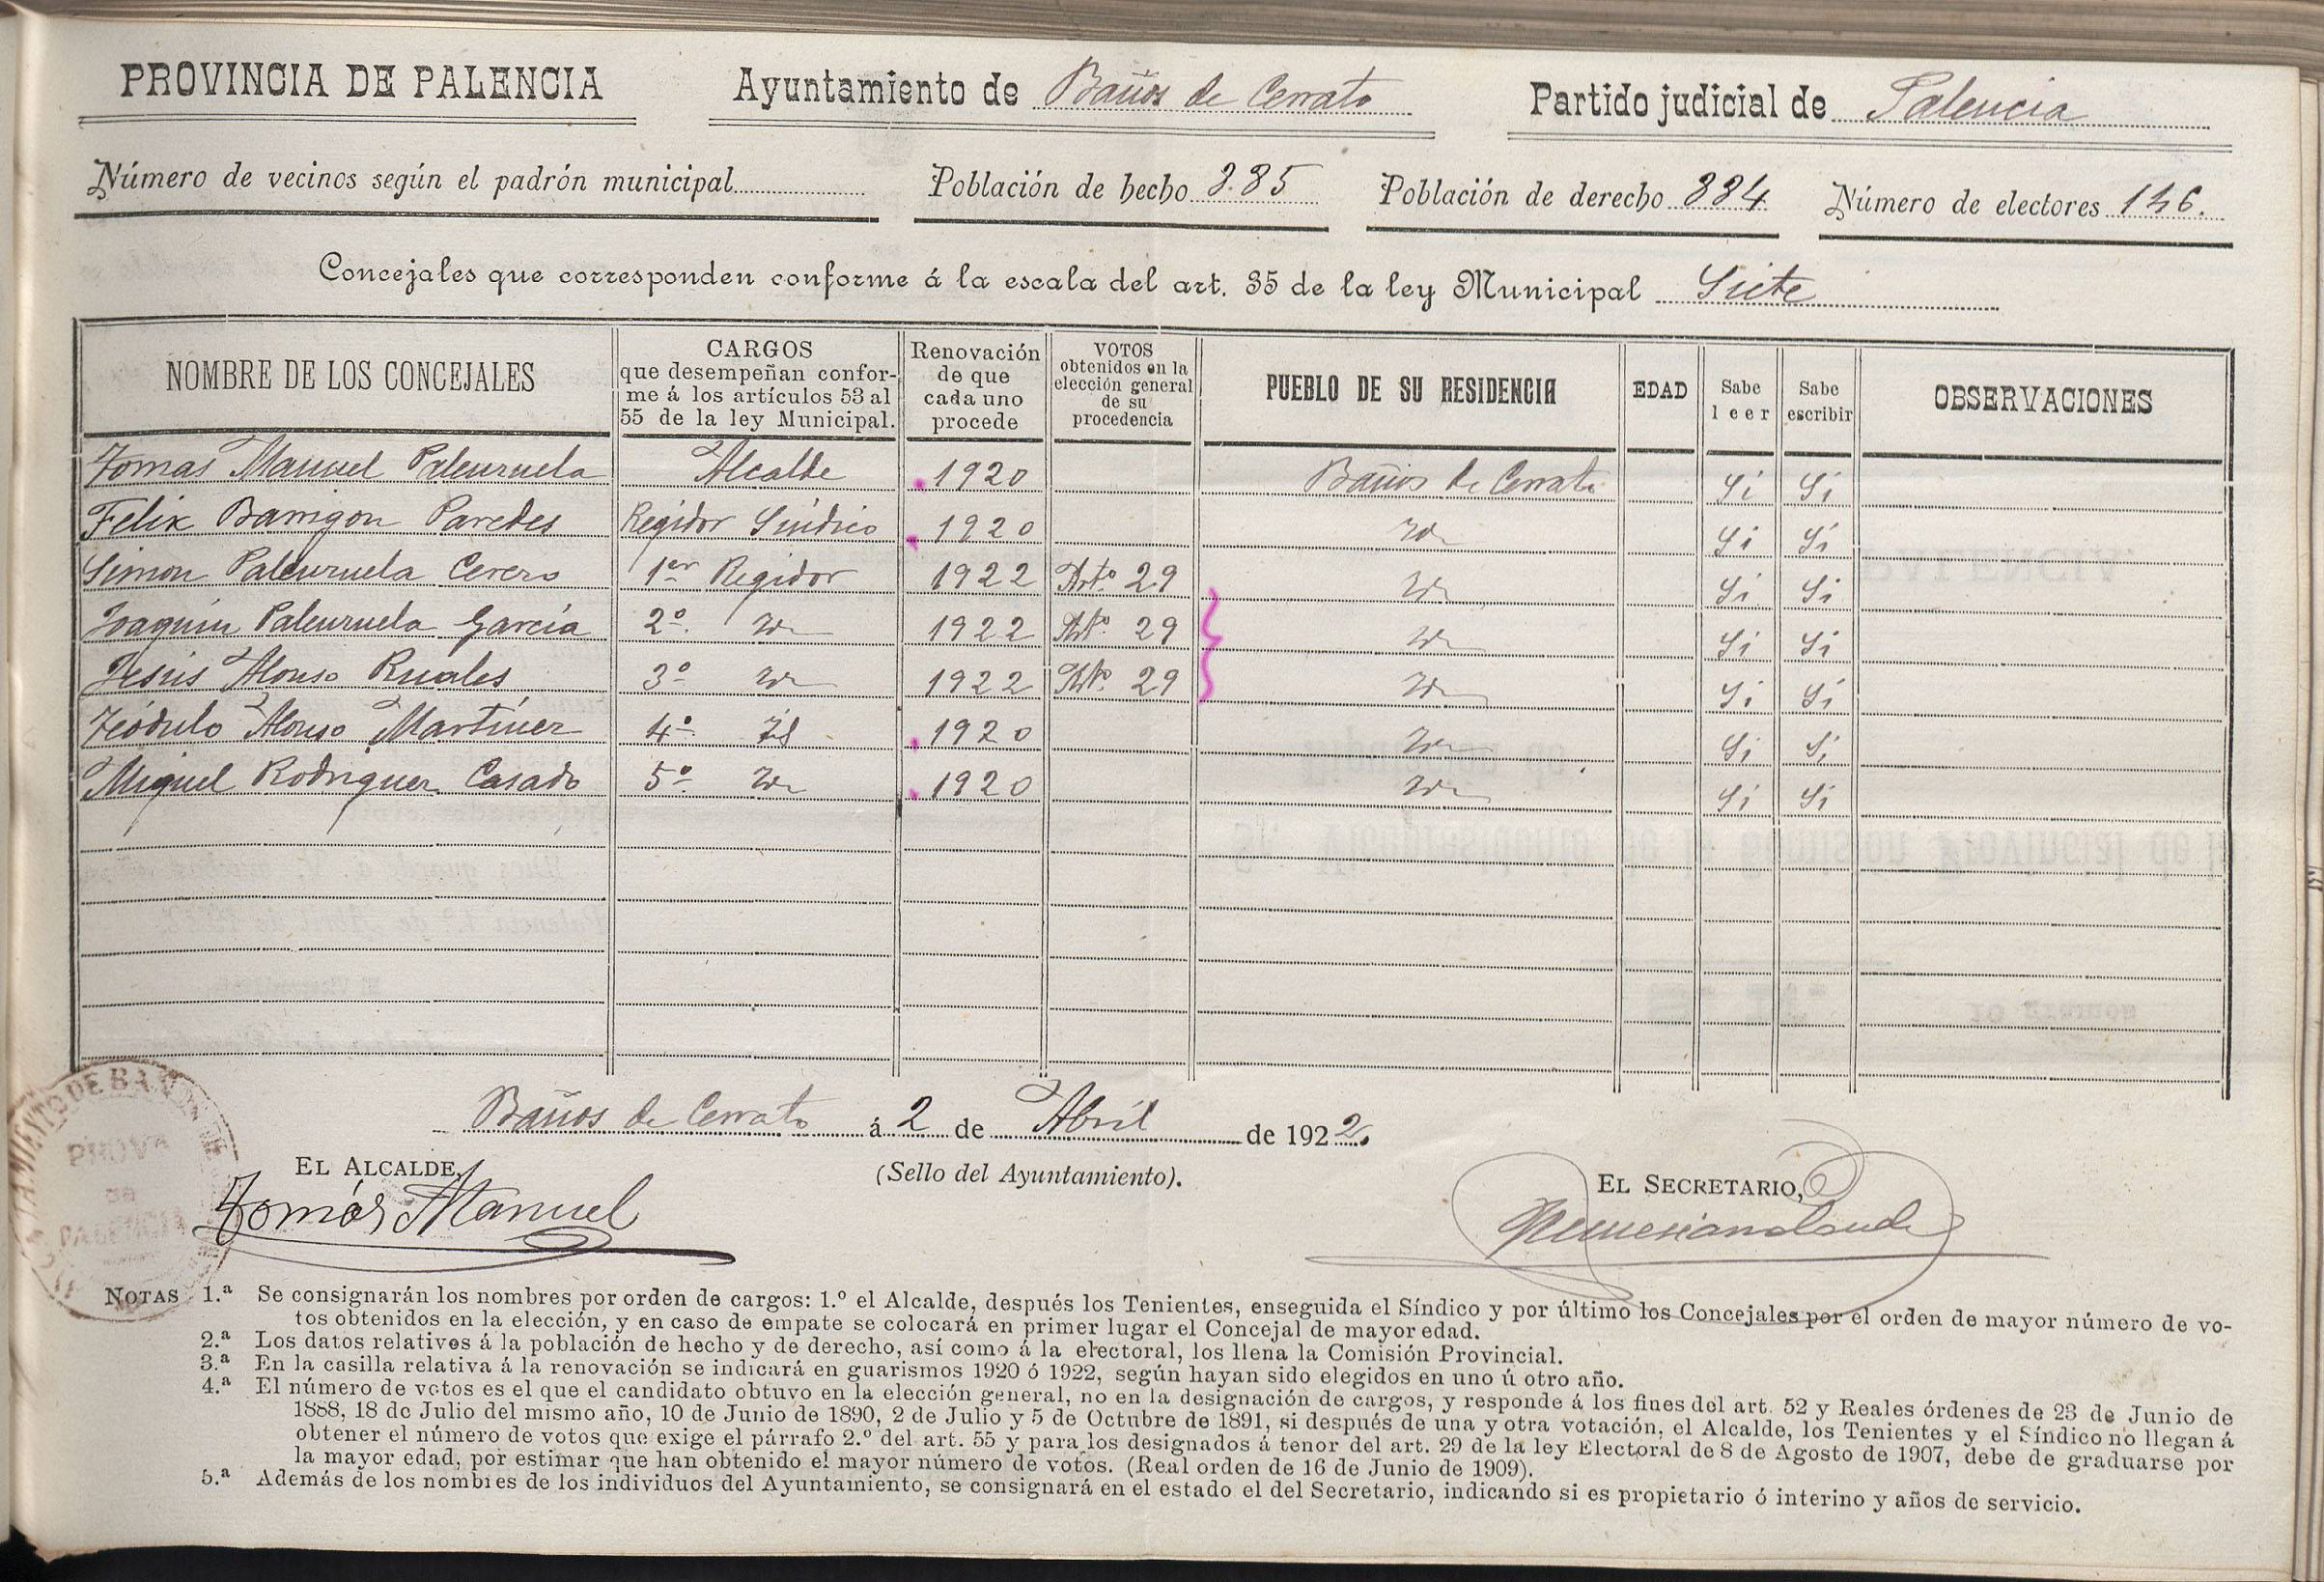 PROVINCIA DE PALENCIA Ayuntamiento de Baños de Cerrato Partido judicial de Palencia
Número de vecinos según el padrón municipal Población de hecho 885 Población de derecho 884 Número de electores 146.
Concejales que corresponden conforme á la escala del art. 35 de la ley Municipal Siete
NOMBRE DE LOS CONCEJALES
CARGOS
que desempeñan confor-
me á los artículos 53 al
55 de la ley Municipal.
Renovación
de que
cada uno
procede
VOTOS
obtenidos en la
elección general
de su
procedencia
PUEBLO DE SU RESIDENCIA
EDAD
Sabe
leer
Sabe
escribir
OBSERVACIONES
Tomas Manuel Palenzuela Alcalde 1920 Baños de Cerrato Si Si
Felix Barrigon Paredes Regidor Sindico 1920 Id Si Si
Simon Palenzuela Cerero 1er Regidor 1922 Artº 29 Id Si Si
Joaquin Palenzuela García 2º Id 1922 Artº 29 Id Si Si
Jesús Alonso Ruales 3º Id 1922 Artº 29 Id Si Si
Teódulo Alonso Martinez 4º Id 1920 Id Si Si
Miguel Rodriguez Casado 5º Id 1920 Id Si Si
Baños de Cerrato á 2 de Abril de 1922.
EL ALCALDE,
(Sello del Ayuntamiento).
EL SECRETARIO,
Tomás Manuel
PROVA
DE
PALENCIA
NOTAS 1.ª Se consignarán los nombres por orden de cargos: 1.º el Alcalde, después los Tenientes, enseguida el Síndico y por último los Concejales por el orden de mayor número de vo-
tos obtenidos en la elección, y en caso de empate se colocará en primer lugar el Concejal de mayor edad.
2.ª Los datos relativos á la población de hecho y de derecho, así como á la electoral, los llena la Comisión Provincial.
3.ª En la casilla relativa á la renovación se indicará en guarismos 1920 ó 1922, según hayan sido elegidos en uno ú otro año.
4.ª El número de votos es el que el candidato obtuvo en la elección general, no en la designación de cargos, y responde á los fines del art. 52 y Reales órdenes de 23 de Junio de
1888, 18 de Julio del mismo año, 10 de Junio de 1890, 2 de Julio y 5 de Octubre de 1891, si después de una y otra votación, el Alcalde, los Tenientes y el Síndico no llegan á
obtener el número de votos que exige el párrafo 2.º del art. 55 y para los designados á tenor del art. 29 de la ley Electoral de 8 de Agosto de 1907, debe de graduarse por
la mayor edad, por estimar que han obtenido el mayor número de votos. (Real orden de 16 de Junio de 1909).
5.ª Además de los nombres de los individuos del Ayuntamiento, se consignará en el estado el del Secretario, indicando si es propietario ó interino y años de servicio.